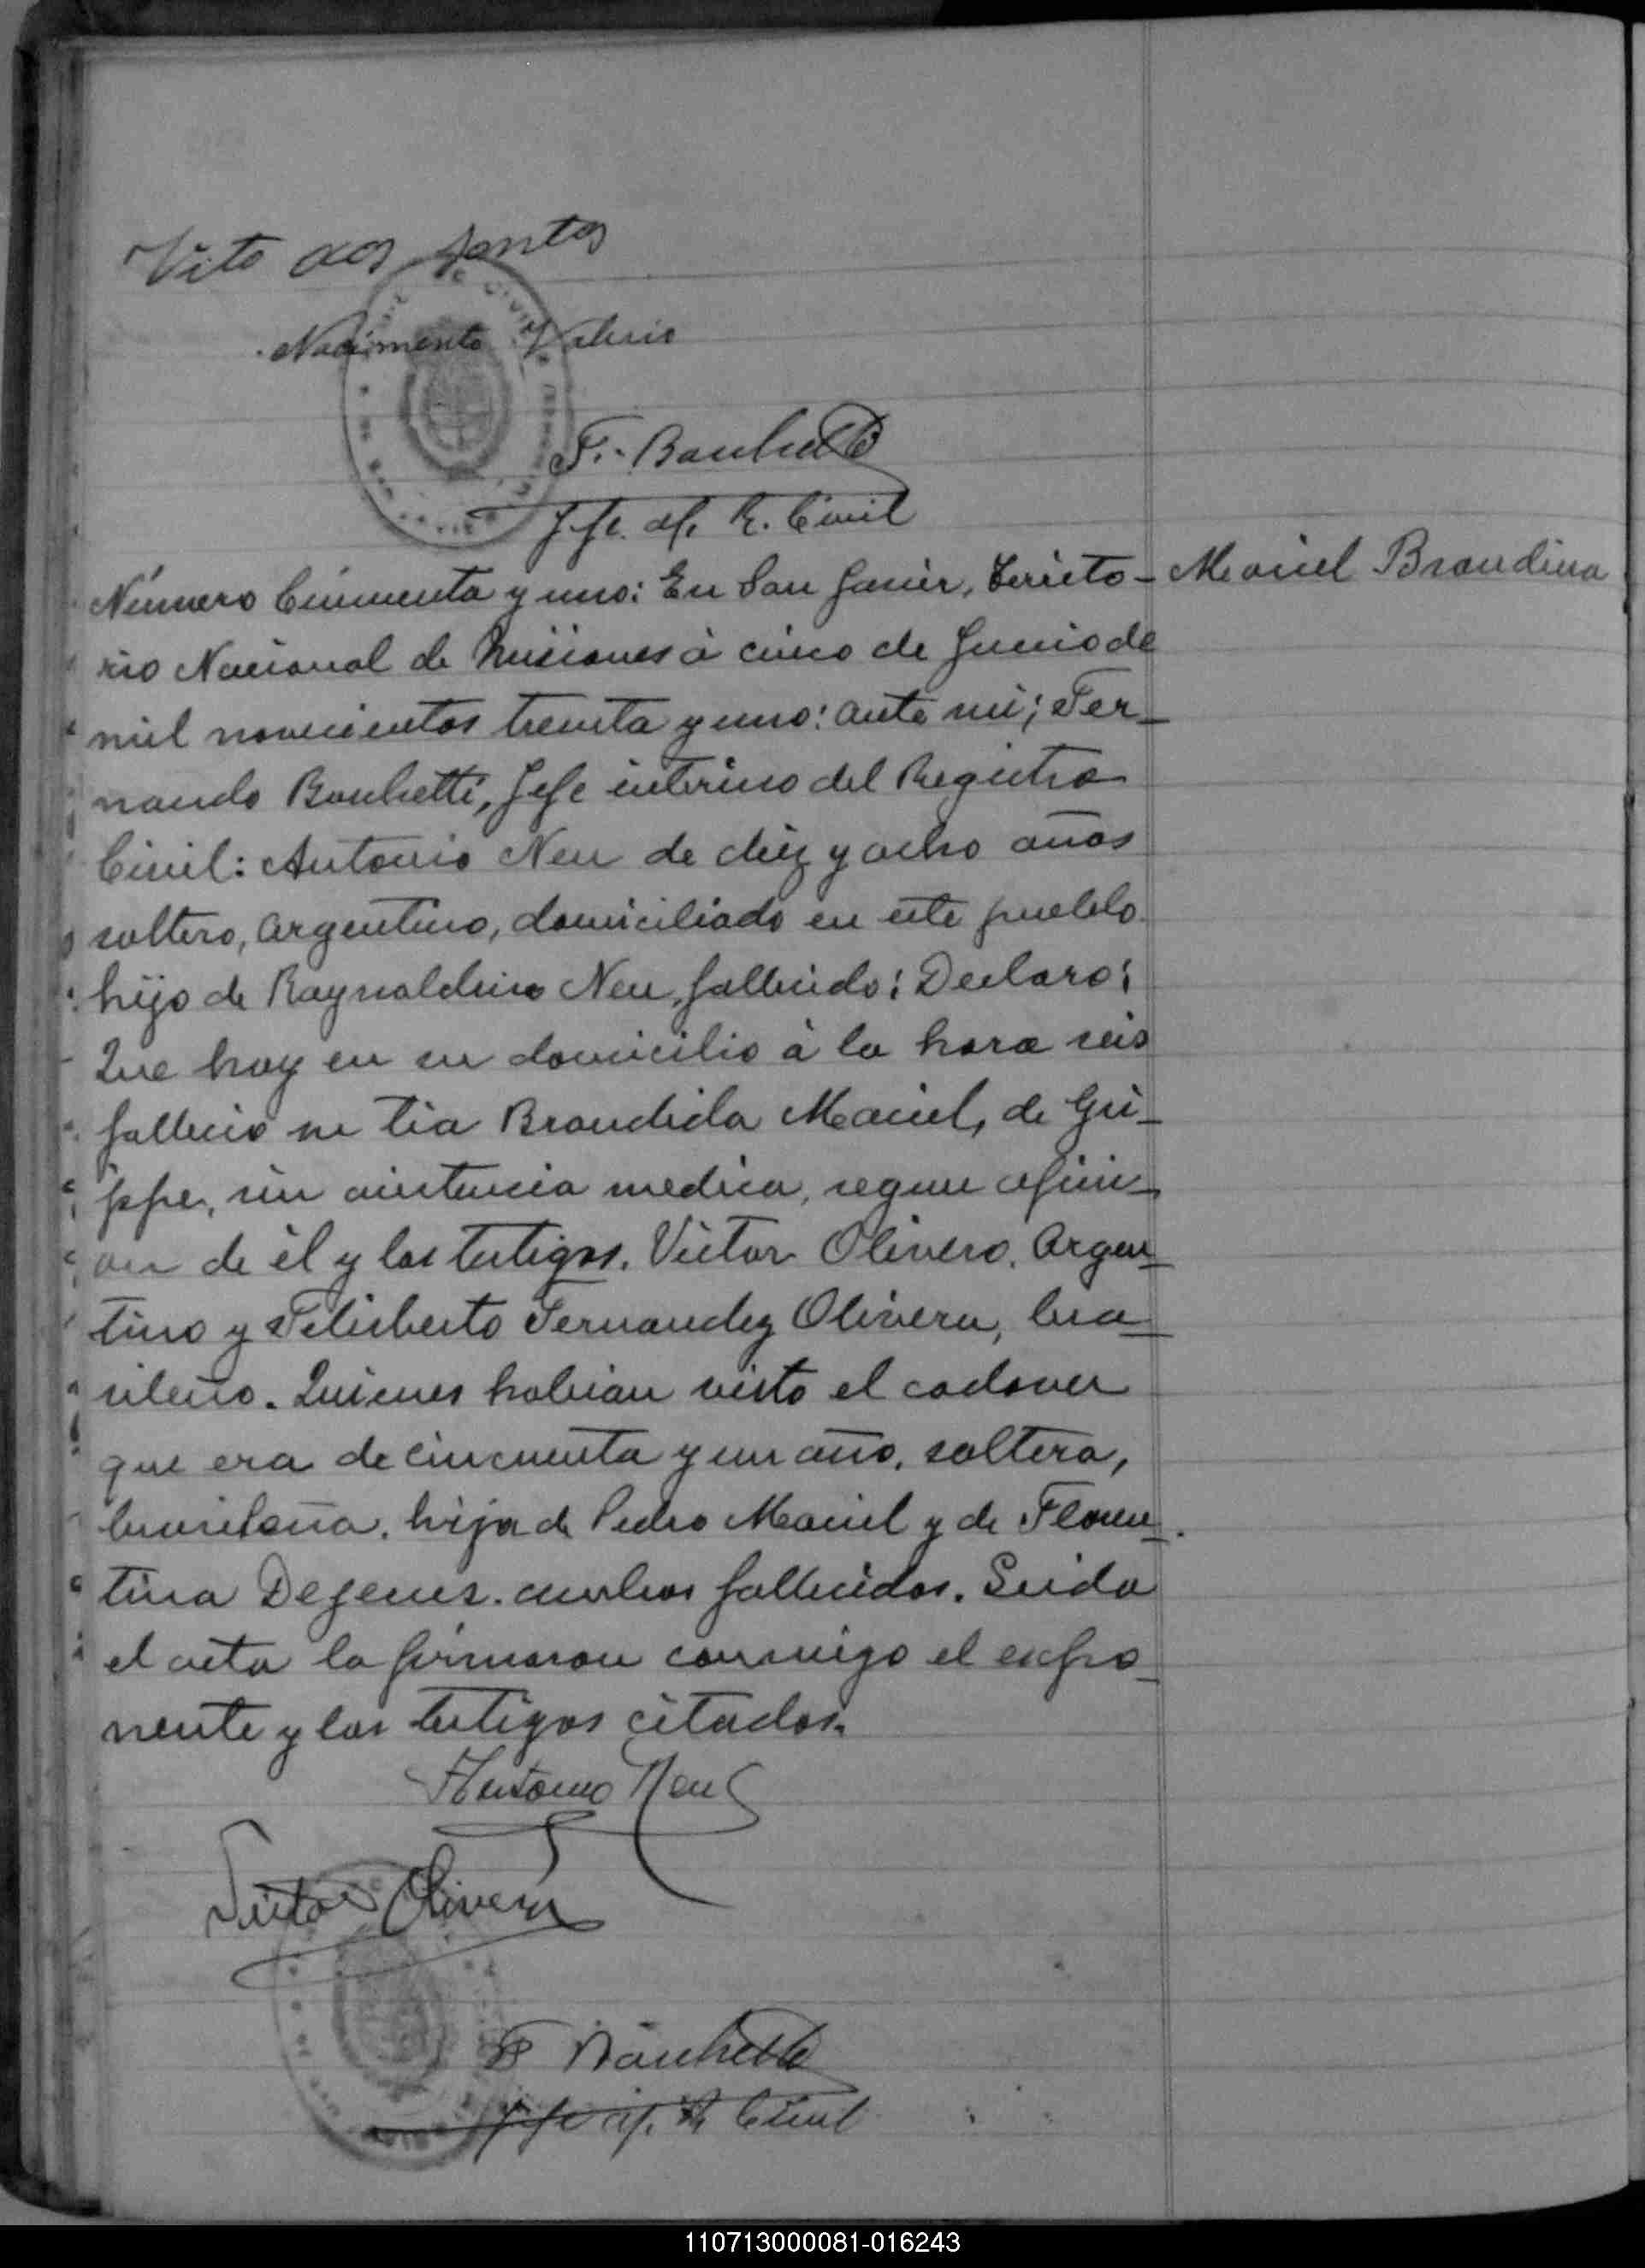 Vito dos Santos
Nacimento Valerio
F. Banchetti
Jefe R. Civil
Número Cincuenta y uno: En San Javier, Territo- Maciel Brandina
rio Nacional de Misiones à cinco de Junio de
mil novecientos treinta y uno: ante mi; Fer-
nando Banchetti, Jefe interino del Registro
Civil: Antonio Neu de diez y ocho años
soltero, Argentino, domiciliado en este pueblo
hijo de Raynoldino Neu, fallecido; Declaro;
Que hoy en su domicilio à la hora seis
fallecio su tia Brandida Maciel, de Gri-
ppe, sin asistencia medica, segun opini-
on de èl y los testigos. Victor Olivero, Argen-
tino y Feliberto Fernandez Olivera, bra-
sileño. Quienes habian visto el cadaver
que era de cincuenta y un año, soltera,
brasileña, hija de Pedro Maciel y de Floren-
tina De Jesus. ambos fallecidos. Leida
el acta la firmaron conmigo el expo-
nente y los testigos citados.
Antonio Neu
Victor Olivera
F Banchetti
Jefe R Civil
110713000081-016243